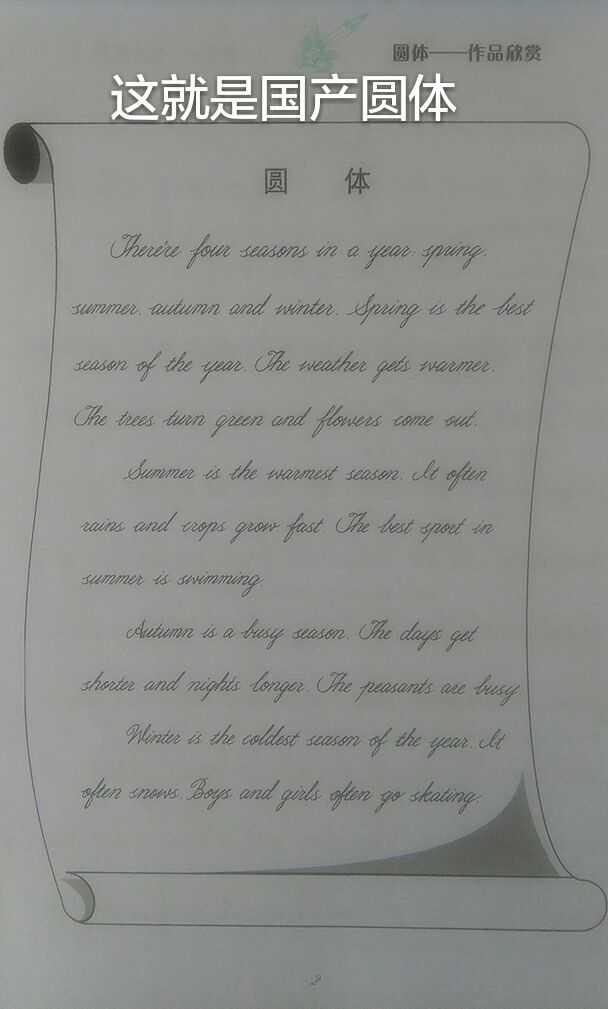 圆体——作品欣赏
这就是国产圆体
圆 体
There're four seasons in a year: spring,
summer, autumn and winter. Spring is the best
season of the year. The weather gets warmer.
The trees turn green and flowers come out.
Summer is the warmest season. It often
rains and crops grow fast. The best sport in
summer is swimming.
Autumn is a busy season. The days get
shorter and nights longer. The peasants are busy
Winter is the coldest season of the year. It
often snows. Boys and girls often go skating.
2